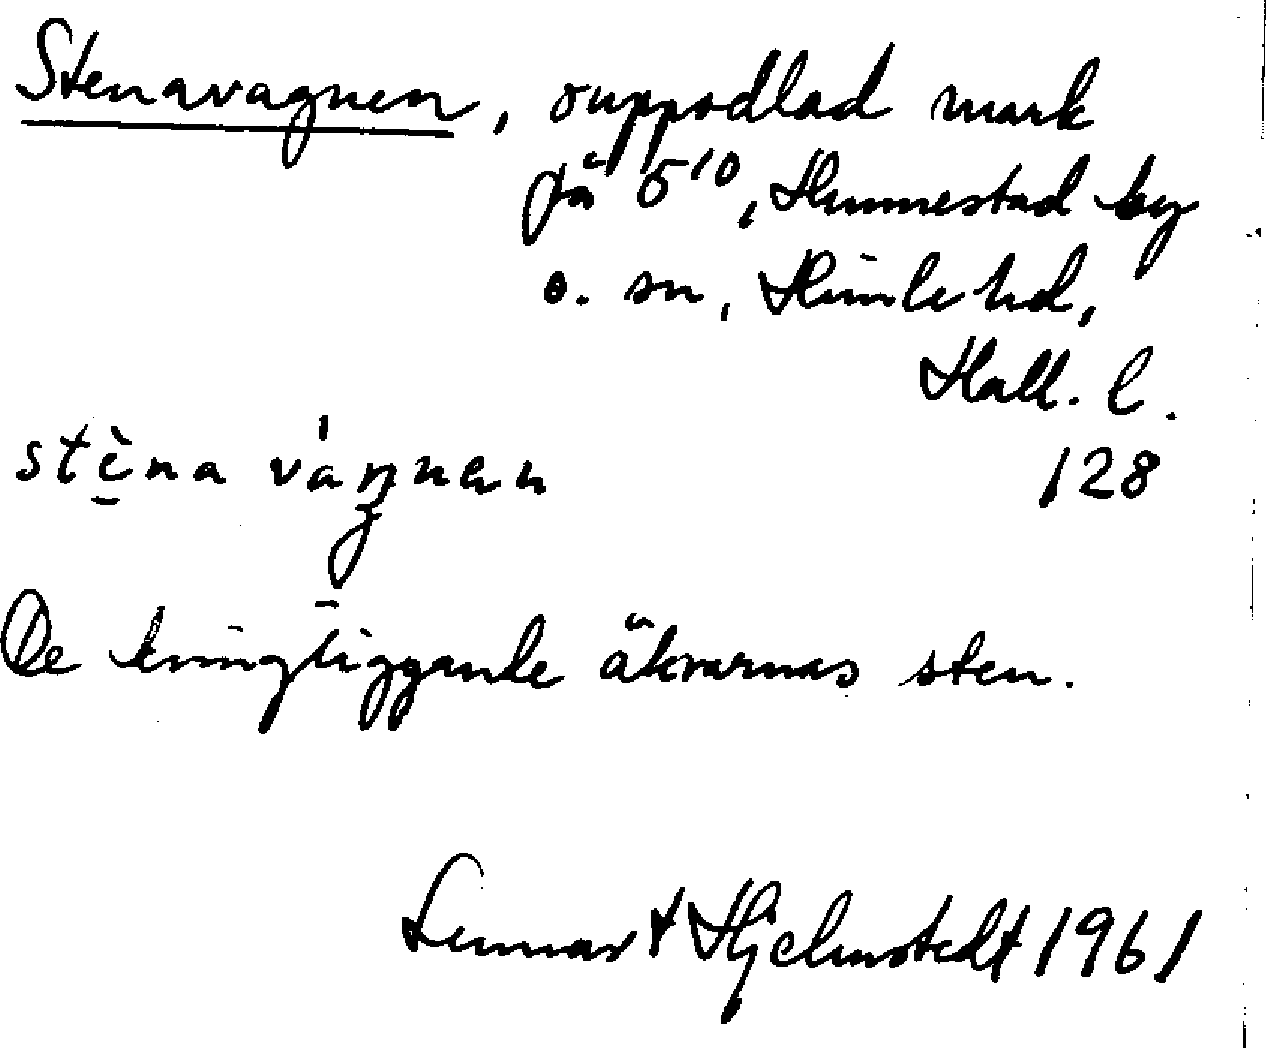 Stenavagnen, ouppodlad mark
på 5¹⁰, Hunnestad by
o. sn, Himle hd,
Hall. l.
stèna váŋnen 128
De kringliggande åkrarnas sten.
Lennart Hjelmstedt 1961